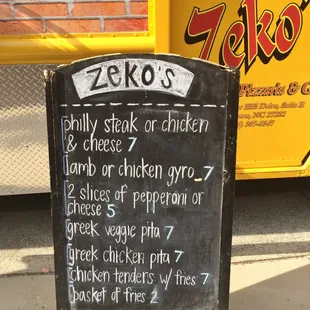 Zeko's
Pizzeria &
Suite
NC
ZEKO'S
philly steak or chicken
& cheese 7
lamb or chicken gyro 7
2 slices of pepperoni or
cheese 5
greek veggie pita 7
greek chicken pita 7
chicken tenders w/ fries 7
basket of fries 2